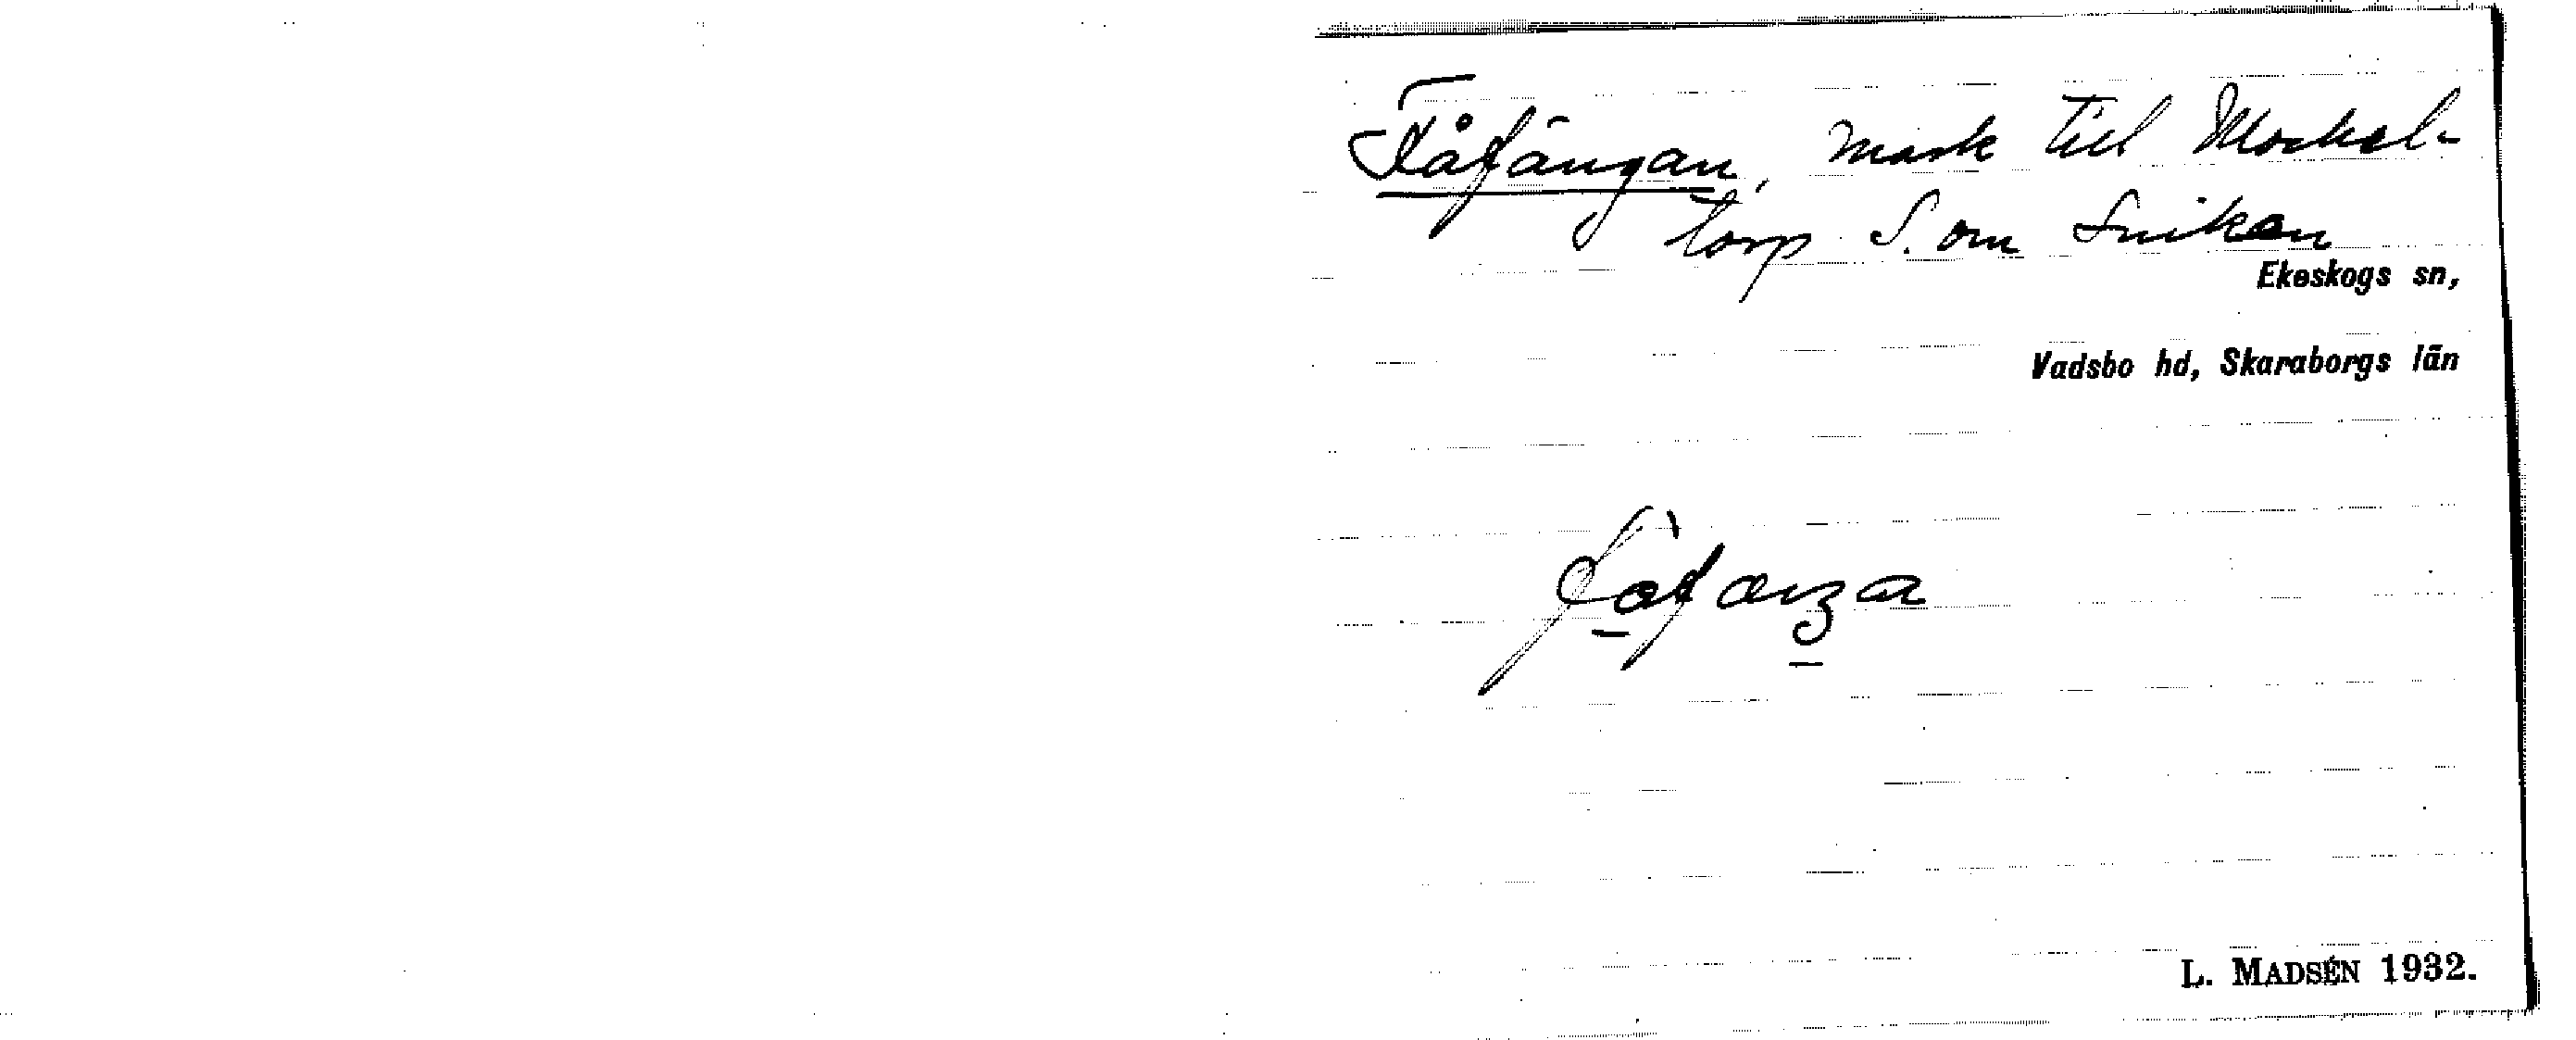 Fåfängan, mark till Mockel-
torp S. om Sniken
Ekeskogs sn,
Vadsbo hd, Skaraborgs län
L. MADSÉN 1932.